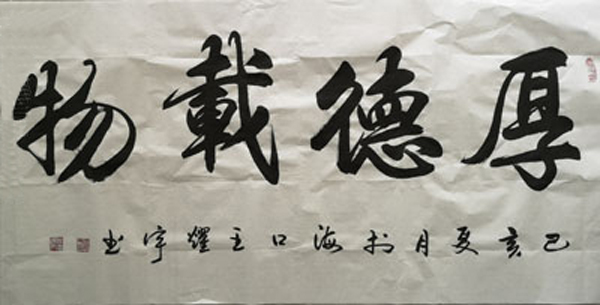 厚德載物
己亥夏月於海口王耀宇书